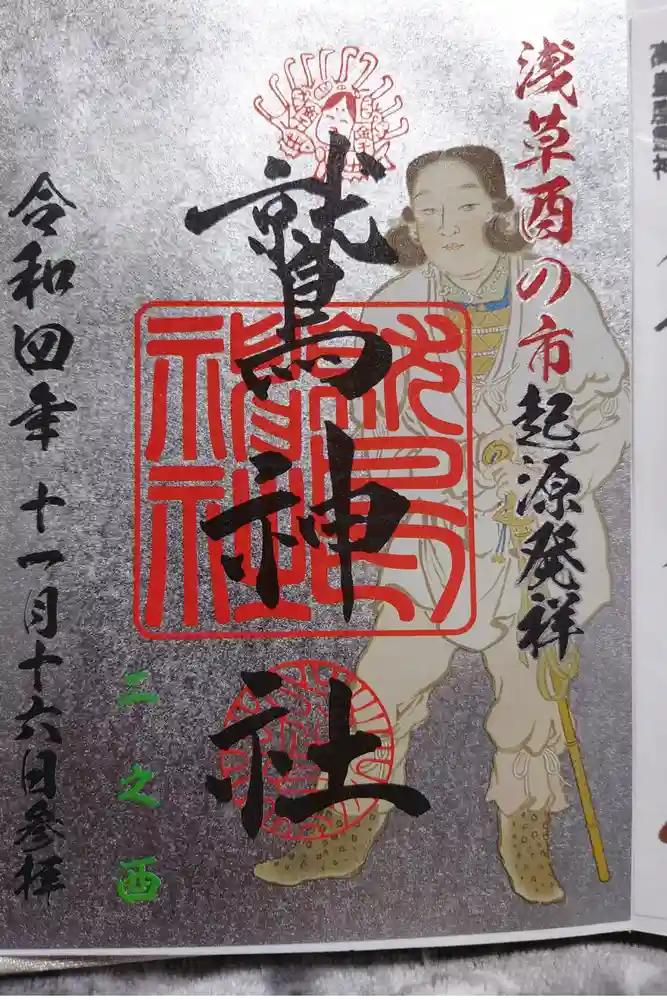 浅草酉の市起源発祥
鷲神社
二之酉
令和四年十一月十六日参拝